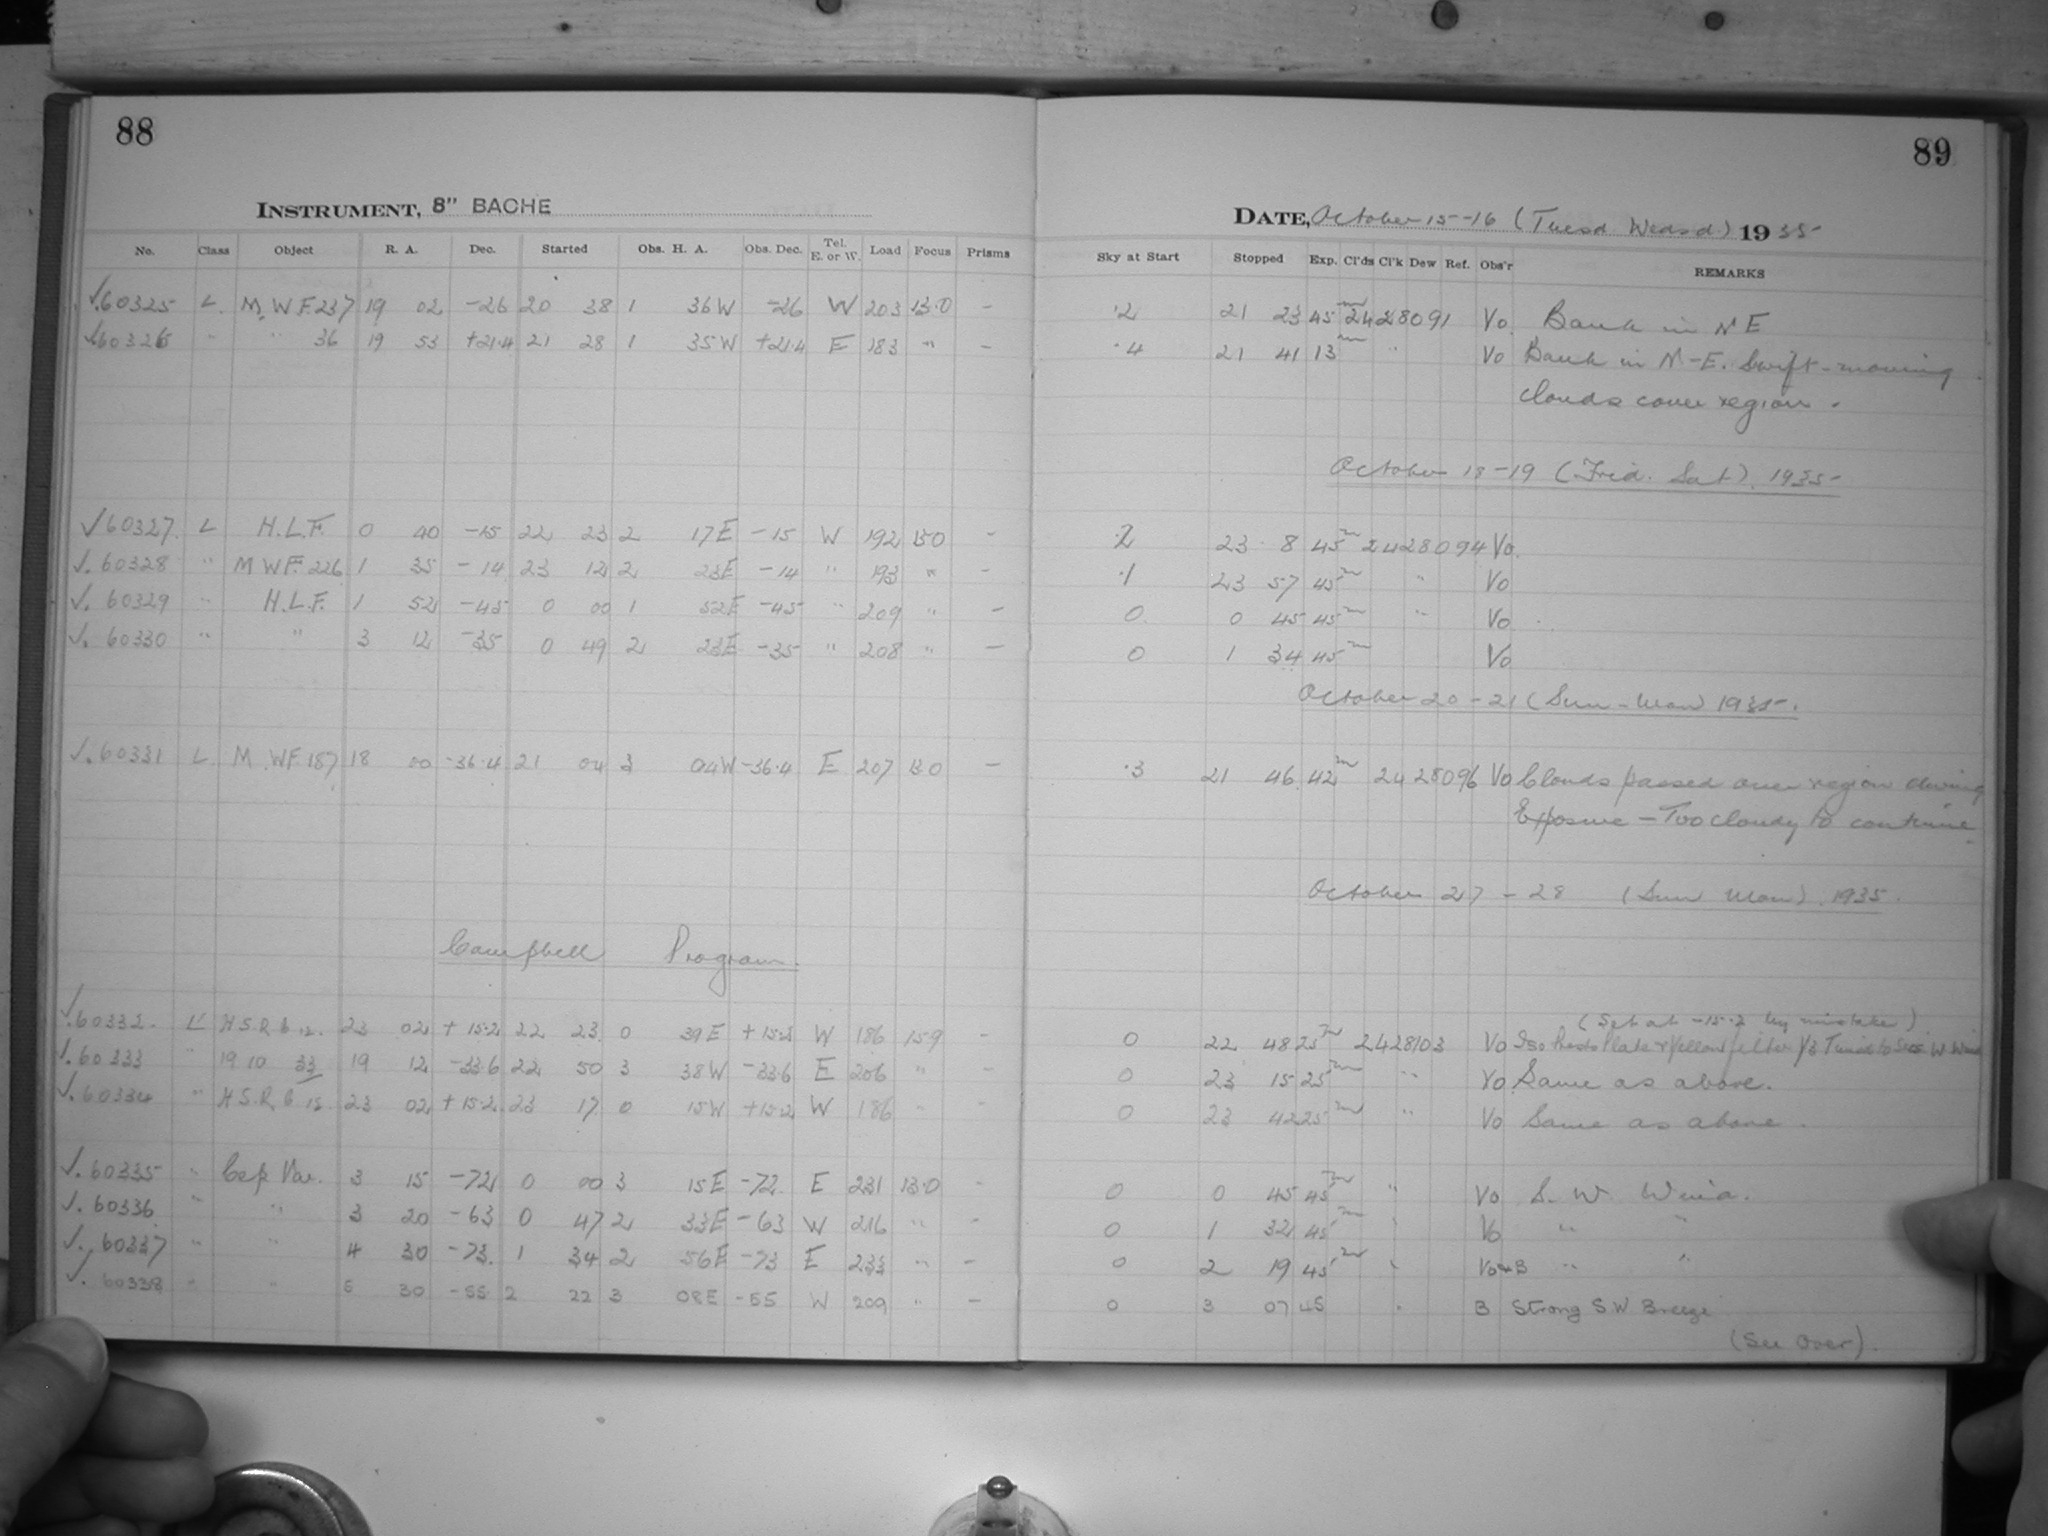 88
INSTRUMENT, 8" BACHE
No. Class Object R. A. Dec. Started Obs. H. A. Obs. Dec. Tel. E. or W. Load Focus Prisms
√.60325 L. M.W.F.237 19 02 -26 20 38 1 36W -26 W 203 13.0 -
√60326 " " 36 19 53 +21.4 21 28 1 35W +21.4 E 183 " -
√60327 L H.L.F. 0 40 -15 22 23 2 17E -15 W 192 130 -
√. 60328 " M WF. 226 1 35 -14 23 12 2 23E -14 " 193 " -
√. 60329 " H.L.F. 1 52 -45 0 00 1 52E -45 " 209 " -
√. 60330 " " 3 12 -35 0 49 2 23E -35 " 208 " -
√. 60331 L M.WF.187 18 00 -36.4 21 04 3 04W -36.4 E 207 130 -
Campbell Program.
√.60332. L H.S.R. 23 02 +15.2 22 23 0 39E +15.2 W 186 15.9 -
√.60333 " 19 10 33 19 12 -33.6 22 50 3 38W -33.6 E 206 " -
√.60334 " H.S.R. 23 02 +15.2 23 17 0 15W +15.2 W 186 " -
√.60335 " Cep Var. 3 15 -72 0 00 3 15E -72 E 231 13.0 -
√. 60336 " " 3 20 -63 0 47 2 33E -63 W 216 " -
√. 60337 " " 4 30 -73. 1 34 2 56E -73 E 233 " -
√. 60338 " " 5 30 -55 2 22 3 08E -55 W 209 " -
89
DATE, October 15-16 (Tuesd Wedsd) 1935
Sky at Start Stopped Exp. Cl'ds Cl'k Dew Ref. Obs'r REMARKS
.2 21 23 45m 2428091 Vo. Bank in N E
.4 21 41 13m " Vo Bank in N-E. Swift-moving
clouds cover region.
October 18-19 (Frid. Sat). 1935
.2 23 8 45m 2428094 Vo.
.1 23 57 45m " Vo
0 0 45 45m " Vo
0 1 34 45m Vo
October 20-21 (Sun-Mon) 1935.
.3 21 46 42m 2428096 Vo Clouds passed over region during
Exposure - Too cloudy to continue
October 27-28 (Sun Mon). 1935.
(Set at -15.2 by mistake)
0 22 48 25m 2428103 Vo Plate & Yellow filter
0 23 15 25m " Vo Same as above.
0 23 42 25m " Vo Same as above.
0 0 45 45m " Vo S. W. Wind.
0 1 32 45m Vo " "
0 2 19 45m " Vo+B " "
0 3 07 45 " B Strong S.W Breeze
(See over).